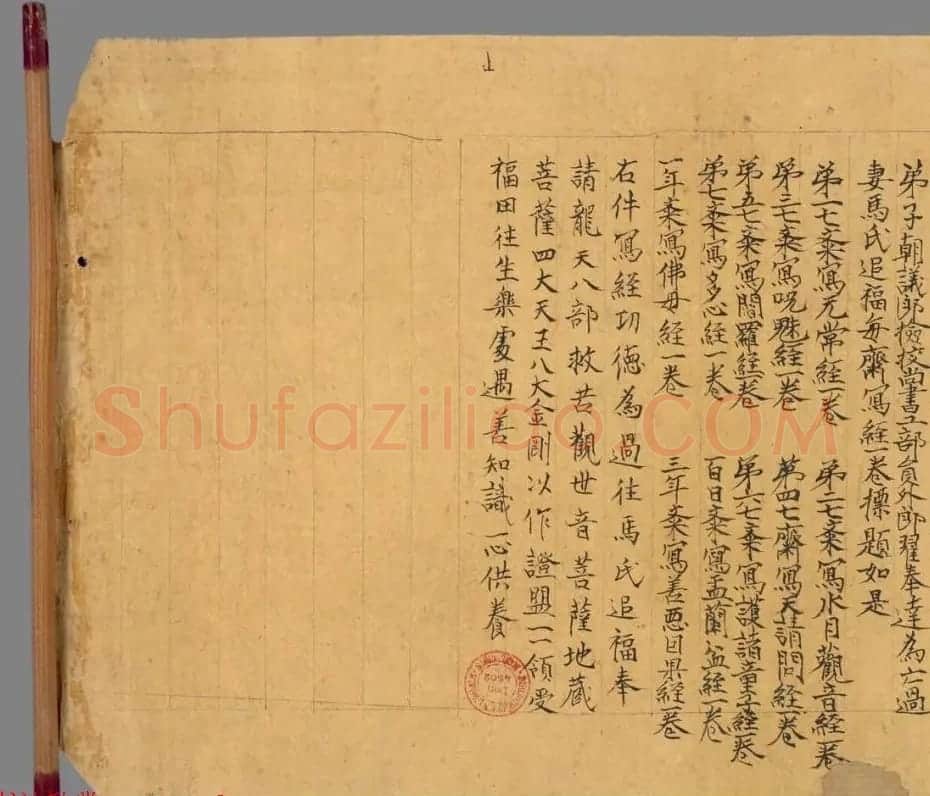 弟子朝議郎檢校尚書工部員外郎翟奉達為亡過
妻馬氏追福每齋寫經一卷標題如是
第一七齋寫无常經一卷 第二七齋寫水月觀音經一卷
第三七齋寫呪魅經一卷 第四七齋寫天請問經一卷
第五七齋寫閻羅經一卷 第六七齋寫護諸童子經一卷
第七齋寫多心經一卷 百日齋寫盂蘭盆經一卷
一年齋寫佛母經一卷 三年齋寫善惡因果經一卷
右件寫經功德為過往馬氏追福奉
請龍天八部救苦觀世音菩薩地藏
菩薩四大天王八大金剛以作證盟一一領受
福田往生樂處遇善知識一心供養
Shufaziliao.COM